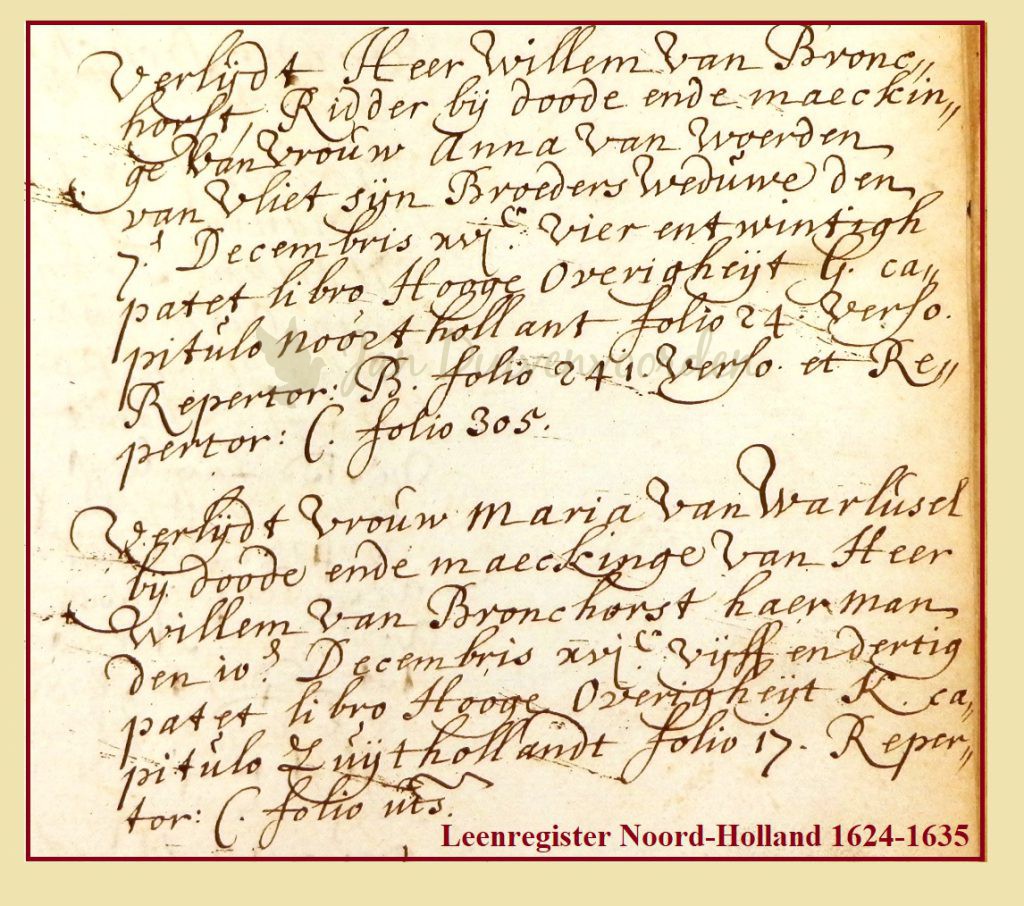 Verlijdt Heer Willem van Bronc„
horst, Ridder bij doode ende maeckin„
ge Van Vrouw Anna van Woerden
van Vliet sijn Broeders Weduwe den
7.e Decembris xvjC. vier entwintigh
patet libro Hooge Overigheijt G. ca„
pitulo noort hollant folio 24. verso.
Repertor: B. folio 241 verso. et Re„
pertor: C. folio 305.
Verlijdt Vrouw Maria Van Warlusel
bij doode ende maeckinge van Heer
Willem van Bronchorst haer man
den 10.e Decembris xvjC. vijff en dertig
patet libro Hooge Overigheijt K. ca„
pitulo Zuijthollandt folio 17. Reper„
tor: C. folio uts.
Jan Duivenvoorden
Leenregister Noord-Holland 1624-1635